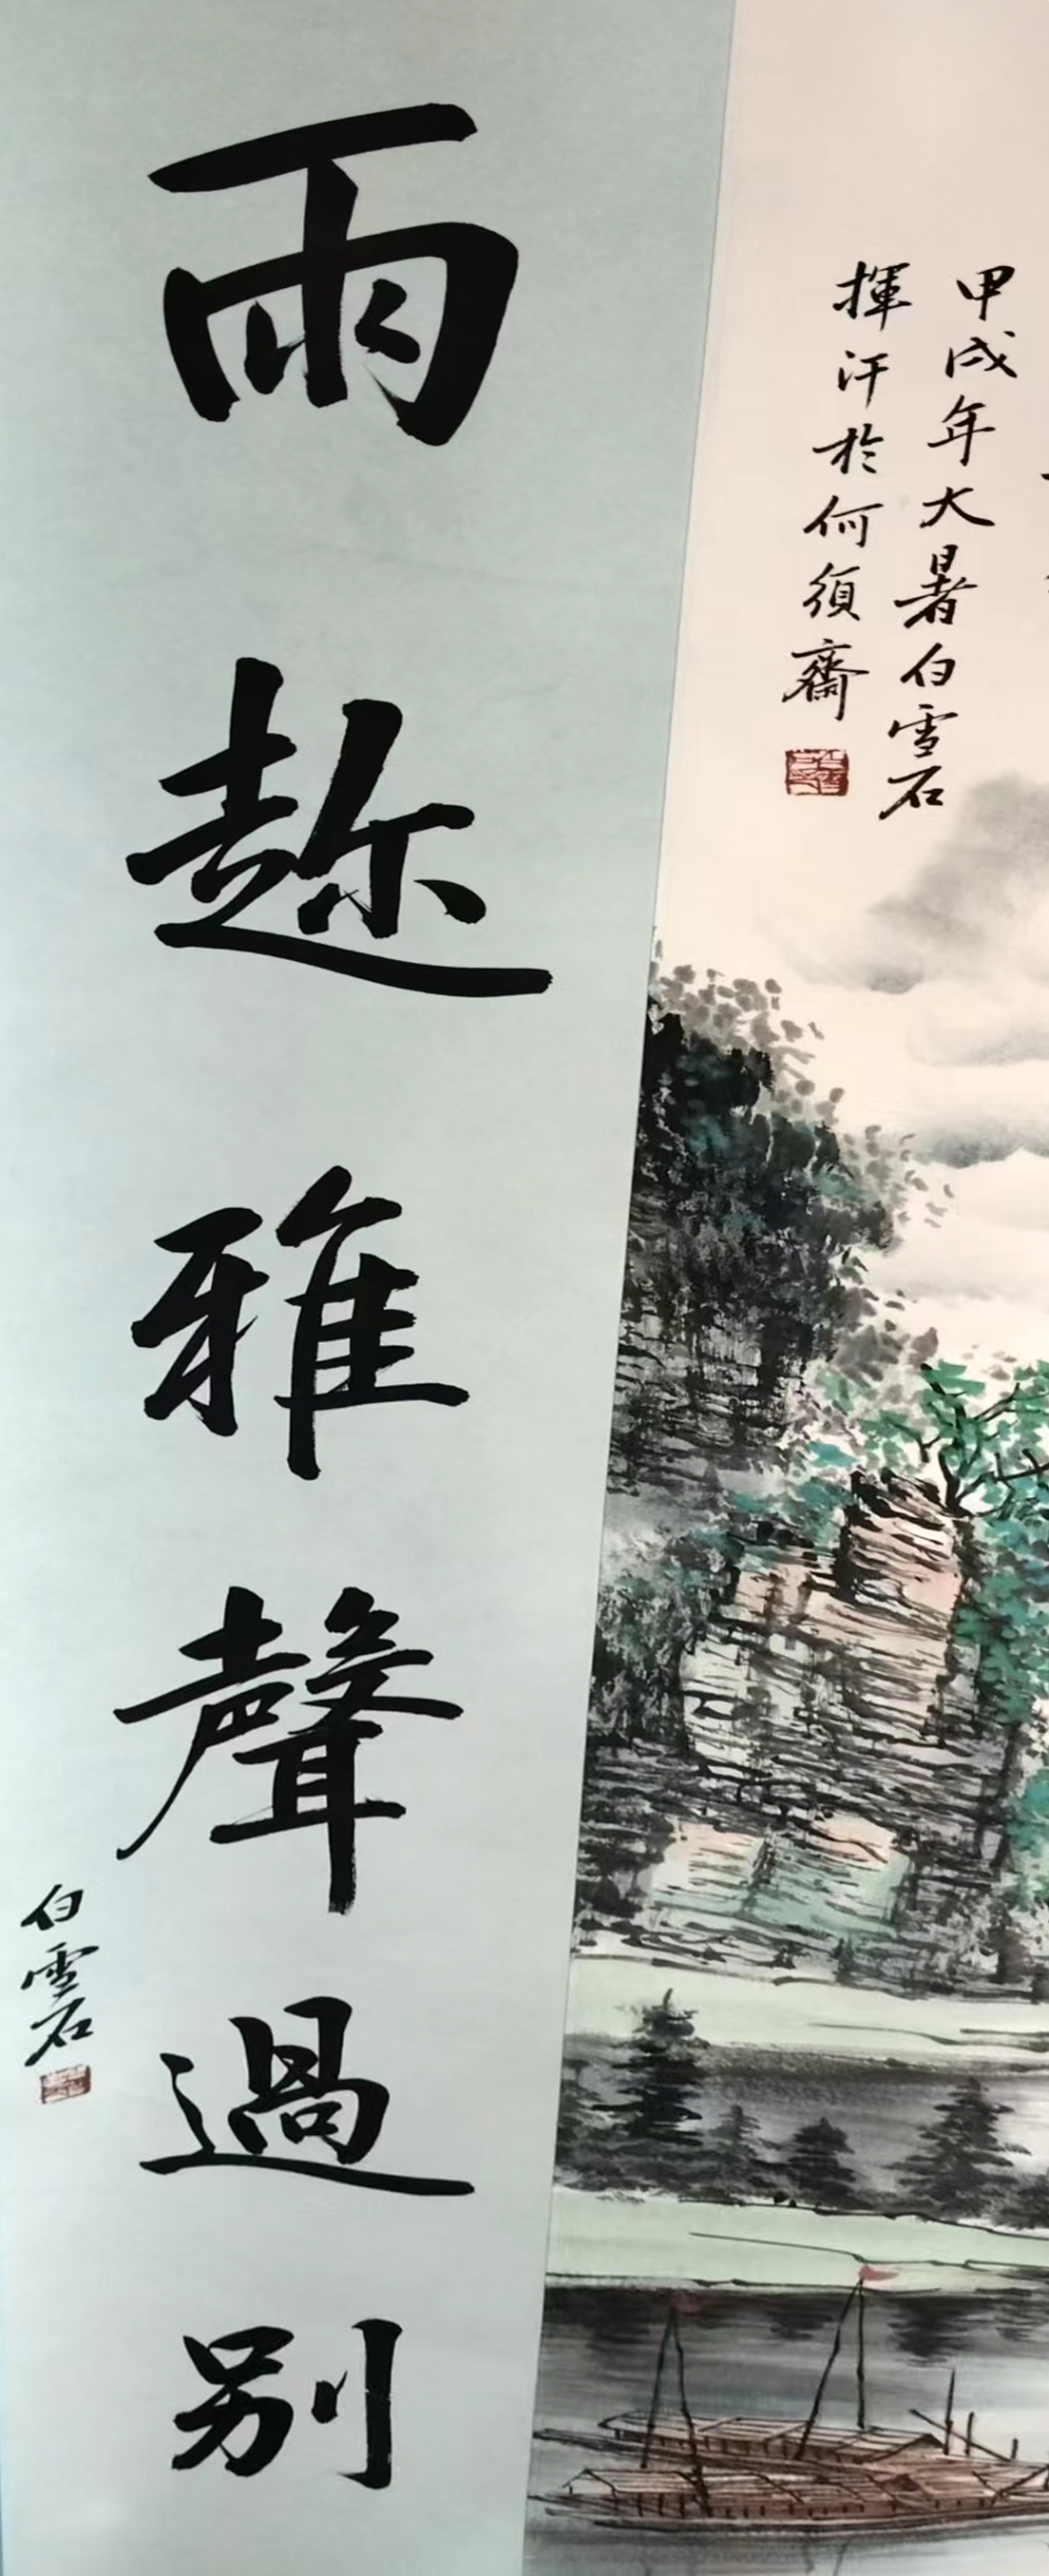 甲戌年大暑白雪石
揮汗於何須齋
雨趂雅聲過別
白雪石